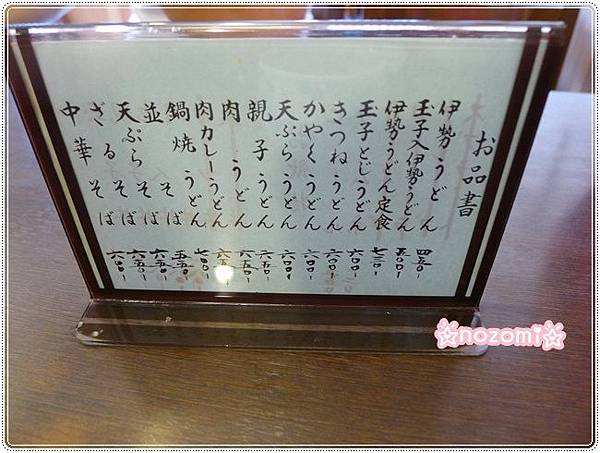 お品書
伊勢うどん 四五〇-
玉子入伊勢うどん 五〇〇-
伊勢うどん定食 七三〇-
玉子とじうどん 六〇〇-
きつねうどん 六〇〇-
かやくうどん 六〇〇-
天ぷらうどん 六〇〇-
親子うどん 六五〇-
肉うどん 六五〇-
肉カレーうどん
鍋焼うどん 七〇〇-
並そば 五五〇-
天ぷらそば 六五〇-
ざるそば 六五〇-
中華そば 六〇〇-
☆nozomi☆